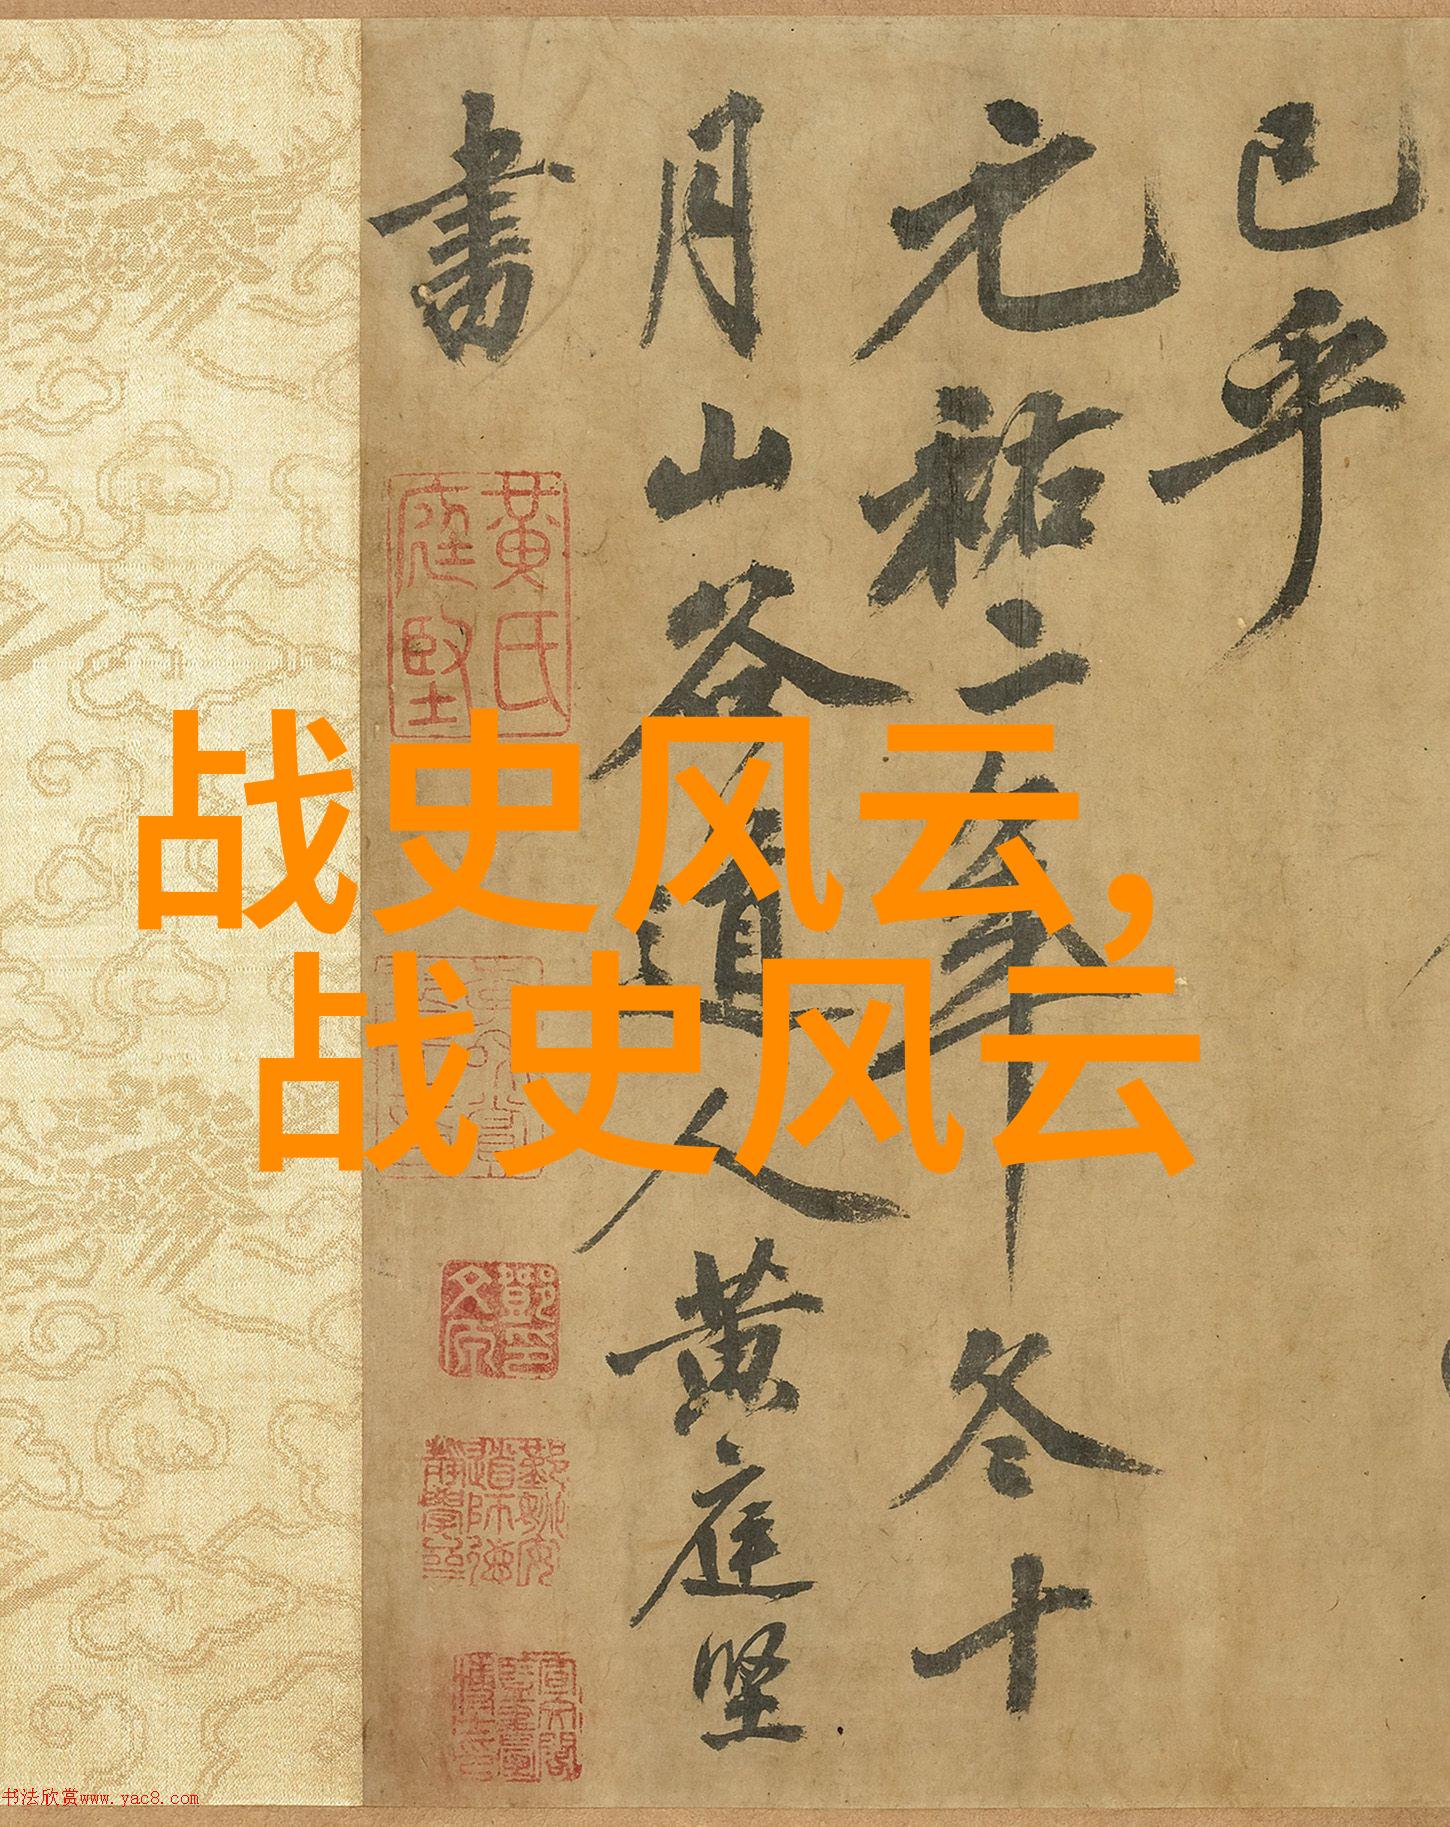 已乎
元祐二年冬十
月山谷道人黄庭坚
書
黄氏
庭堅
战史风云，
战史风云
书法欣赏www.yac8.com